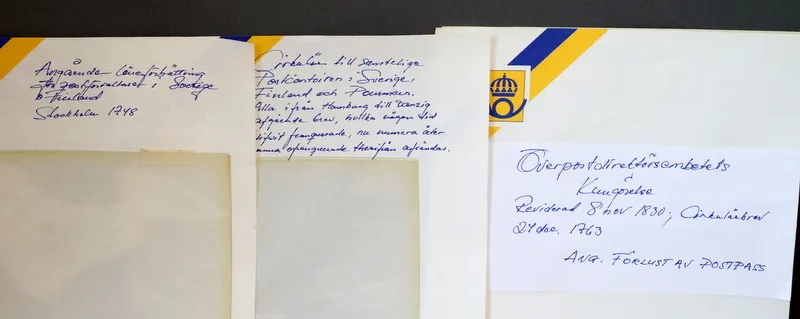 Angående löneförbättring
för postförvaltare i Sverige
o Finland
Stockholm 1748
Cirkulär till samtliga
Postkontoiren i Sverige,
Finland och Pommern.
Alla ifrån Hamburg till Danzig
afgående bref, hvilka någon tid
blifvit franquerade, nu numera åter
ofranquerade therifrån afsändas.
Överpostdirektörsembetets
Kungörelse
Reviderad 8 nov 1830; Cirkulärbrev
21 dec. 1763
ANG. FÖRLUST AV POSTPASS